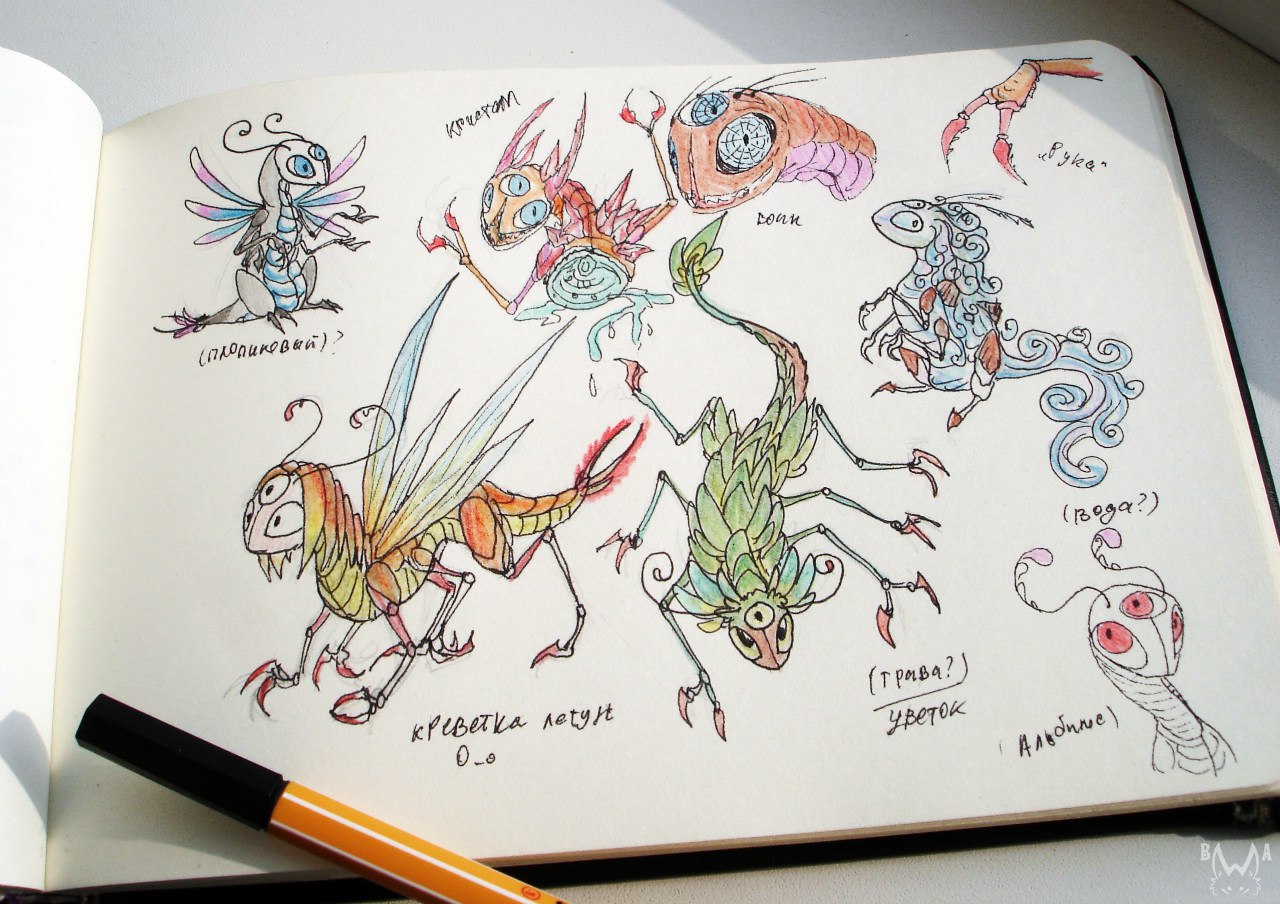 кристалл
"Рука"
(тропиковый)?
(вода?)
(трава?)
цветок
креветка летун
О_о
(Альбинос)
B W A